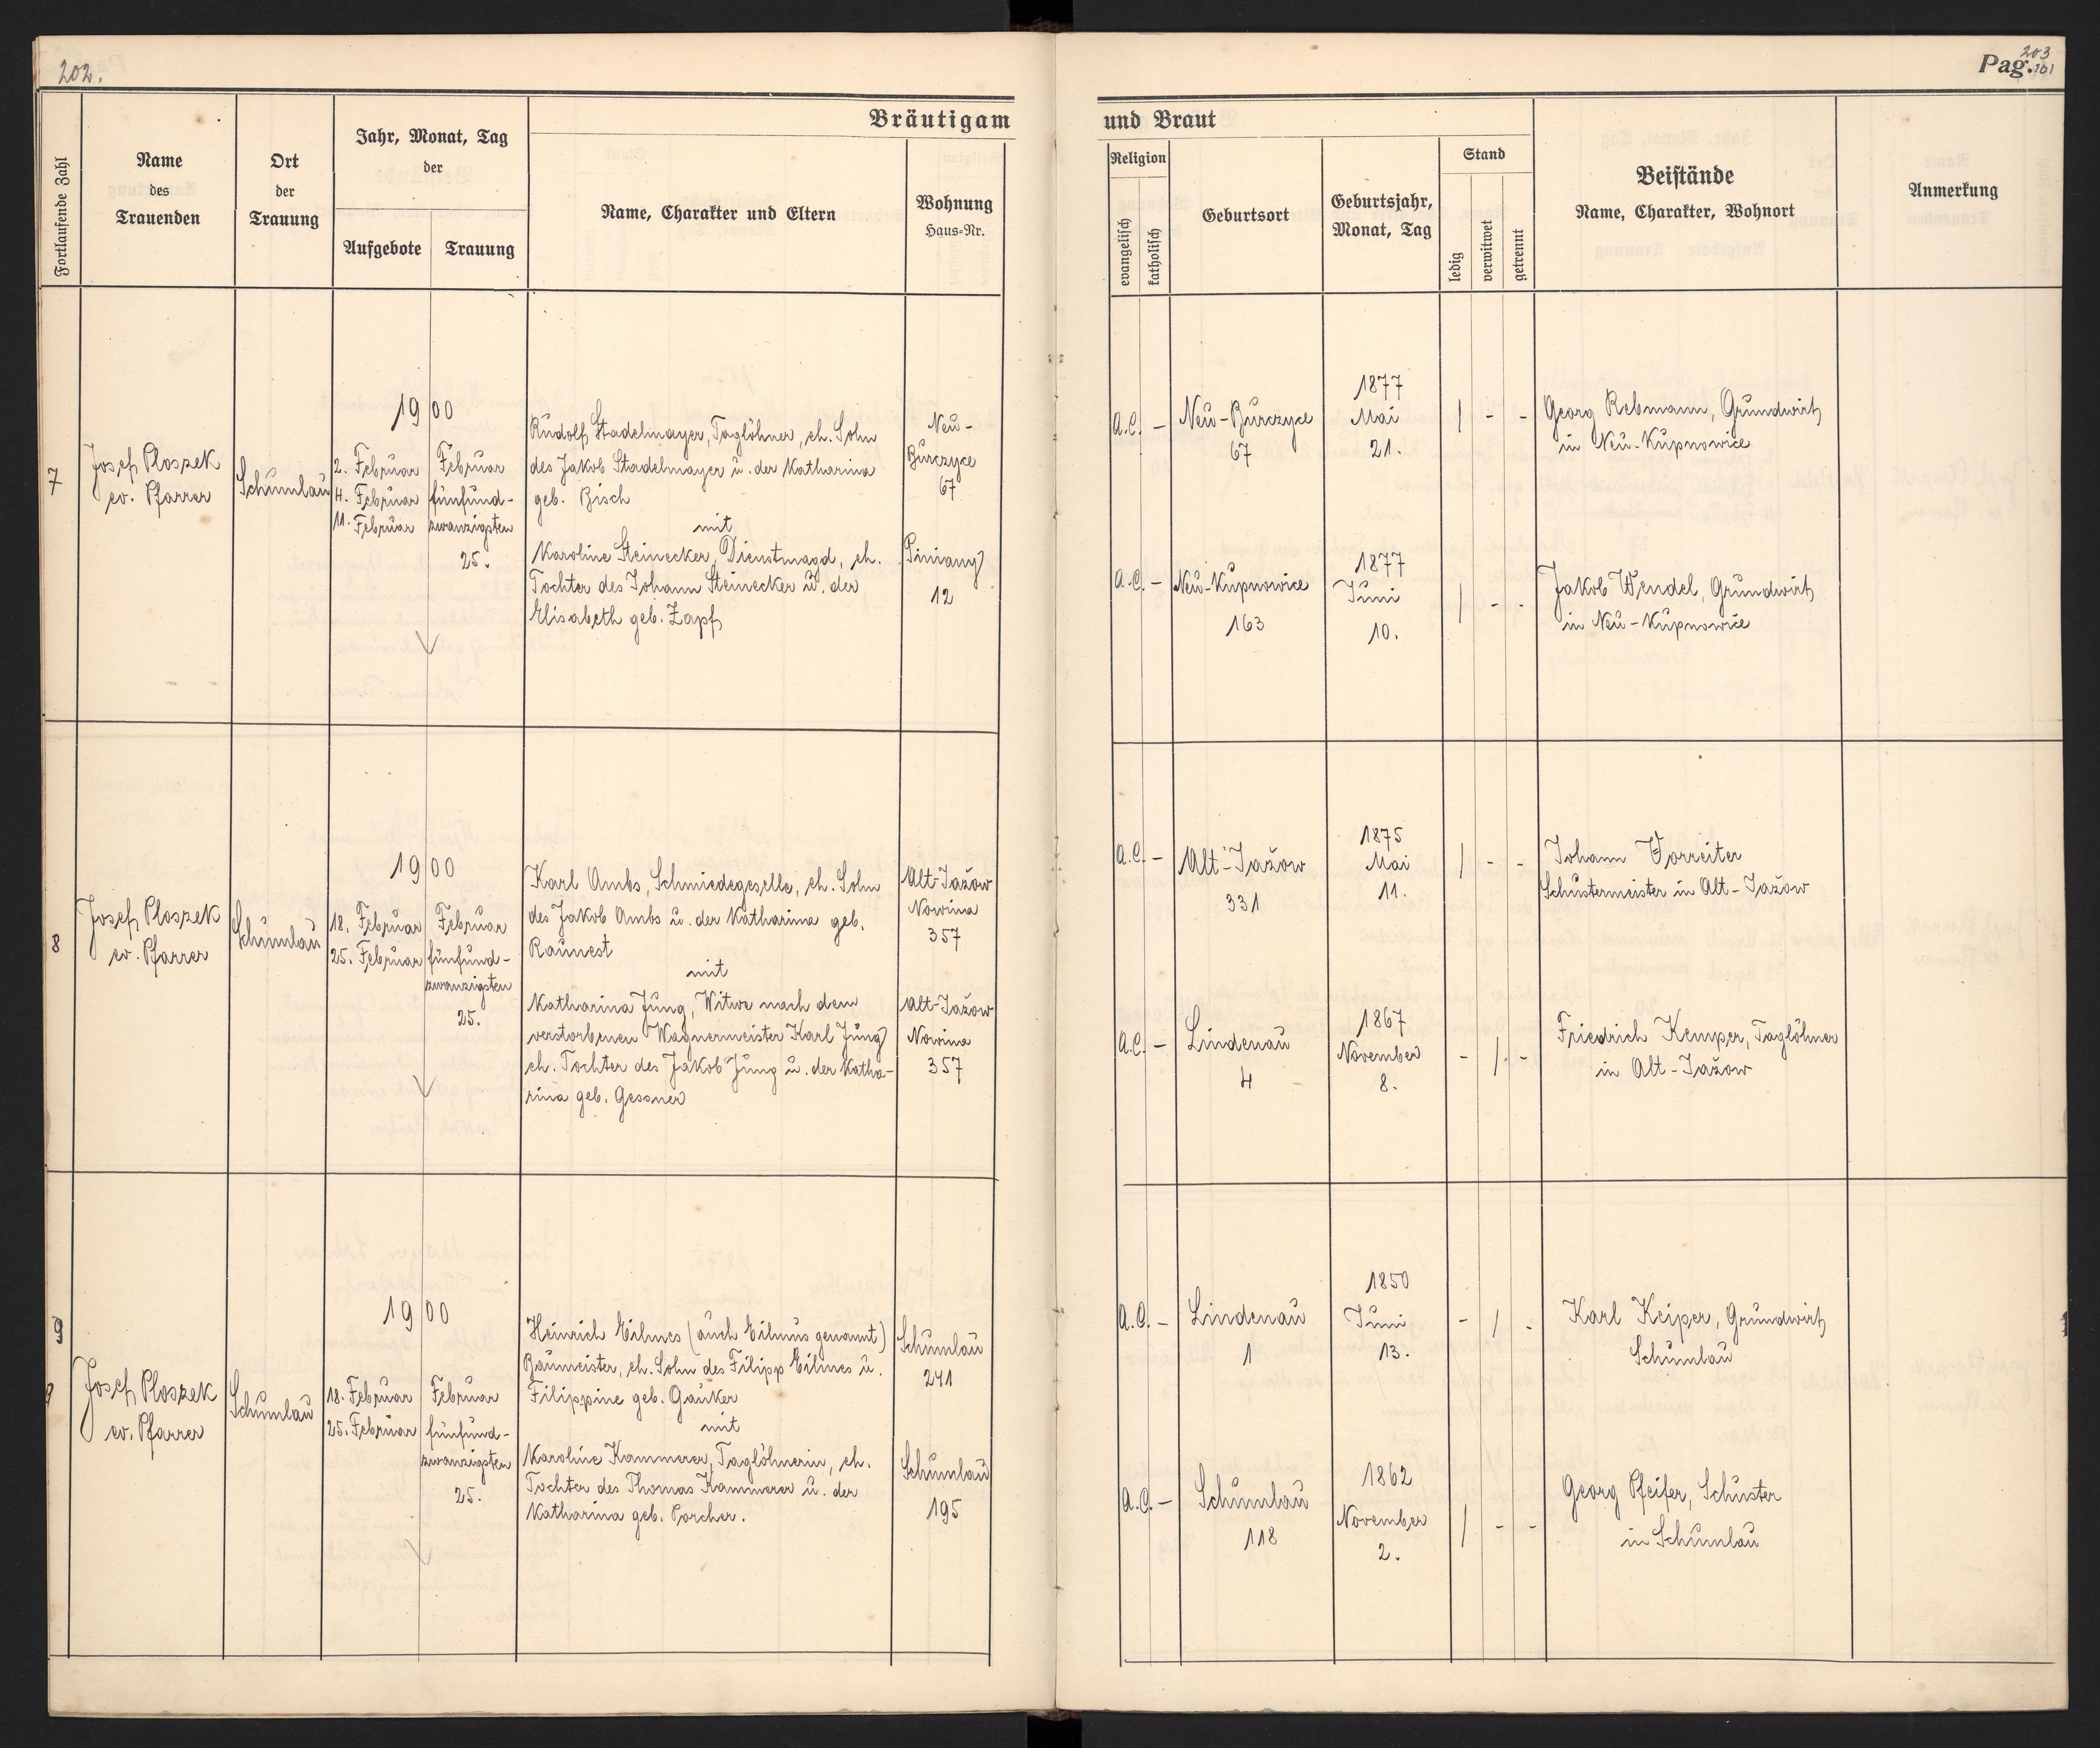 202.
203
Pag. 101
Bräutigam
und Braut
Fortlaufende Zahl
Name
des
Trauenden
Ort
der
Trauung
Jahr, Monat, Tag
der
Aufgebote
Trauung
Name, Charakter und Eltern
Wohnung
Haus-Nr.
Religion
evangelisch
katholisch
Geburtsort
Geburtsjahr,
Monat, Tag
Stand
ledig
verwitwet
getrennt
Beistände
Name, Charakter, Wohnort
Anmerkung
7
Josef Ploszek
ev. Pfarrer
Schumlau
1900
2. Februar
4. Februar
11. Februar
Februar
fünfund-
zwanzigsten
25.
Rudolf Stadelmayer, Taglöhner, eh. Sohn
des Jakob Stadelmayer u. der Katharina
geb. Bisch
mit
Karoline Steinecker, Dienstmagd, eh.
Tochter des Johann Steinecker u. der
Elisabeth geb. Zapf
Neu-
Burczyce
67
Piniany
12
A.C. -
Neu-Burczyce
67
1877
Mai
21.
/ - -
Georg Rebmann, Grundwirt
in Neu-Kupnowice
A.C. -
Neu-Kupnowice
163
1877
Juni
10.
/ - -
Jakob Wendel, Grundwirt
in Neu-Kupnowice
8
Josef Ploszek
ev. Pfarrer
Schumlau
1900
18. Februar
25. Februar
Februar
fünfund-
zwanzigsten
25.
Karl Ambs, Schmiedegeselle, eh. Sohn
des Jakob Ambs u. der Katharina geb.
Raunest
mit
Katharina Jung, Witwe nach dem
verstorbenen Wagnermeister Karl Jung
eh. Tochter des Jakob Jung u. der Katha-
rina geb. Gessner
Alt-Jažow
Nowina
357
Alt-Jažow
Nowina
357
A.C. -
Alt-Jažow
331
1875
Mai
11.
/ - -
Johann Vorreiter
Schustermeister in Alt-Jažow
A.C. -
Lindenau
4
1867
November
8.
- / -
Friedrich Kemper, Taglöhner
in Alt-Jažow
9
Josef Ploszek
ev. Pfarrer
Schumlau
1900
18. Februar
25. Februar
Februar
fünfund-
zwanzigsten
25.
Heinrich Eilmes (auch Eilmus genannt)
Baumeister, eh. Sohn des Filipp Eilmes u.
Filippine geb. Gauker
mit
Karoline Kammerer, Taglöhnerin, eh.
Tochter des Thomas Kammerer u. der
Katharina geb. Porcher.
Schumlau
241
Schumlau
195
A.C. -
Lindenau
1
1850
Juni
13.
- / -
Karl Keiper, Grundwirt
Schumlau
A.C. -
Schumlau
118
1862
November
2.
/ - -
Georg Pfeifer, Schuster
in Schumlau